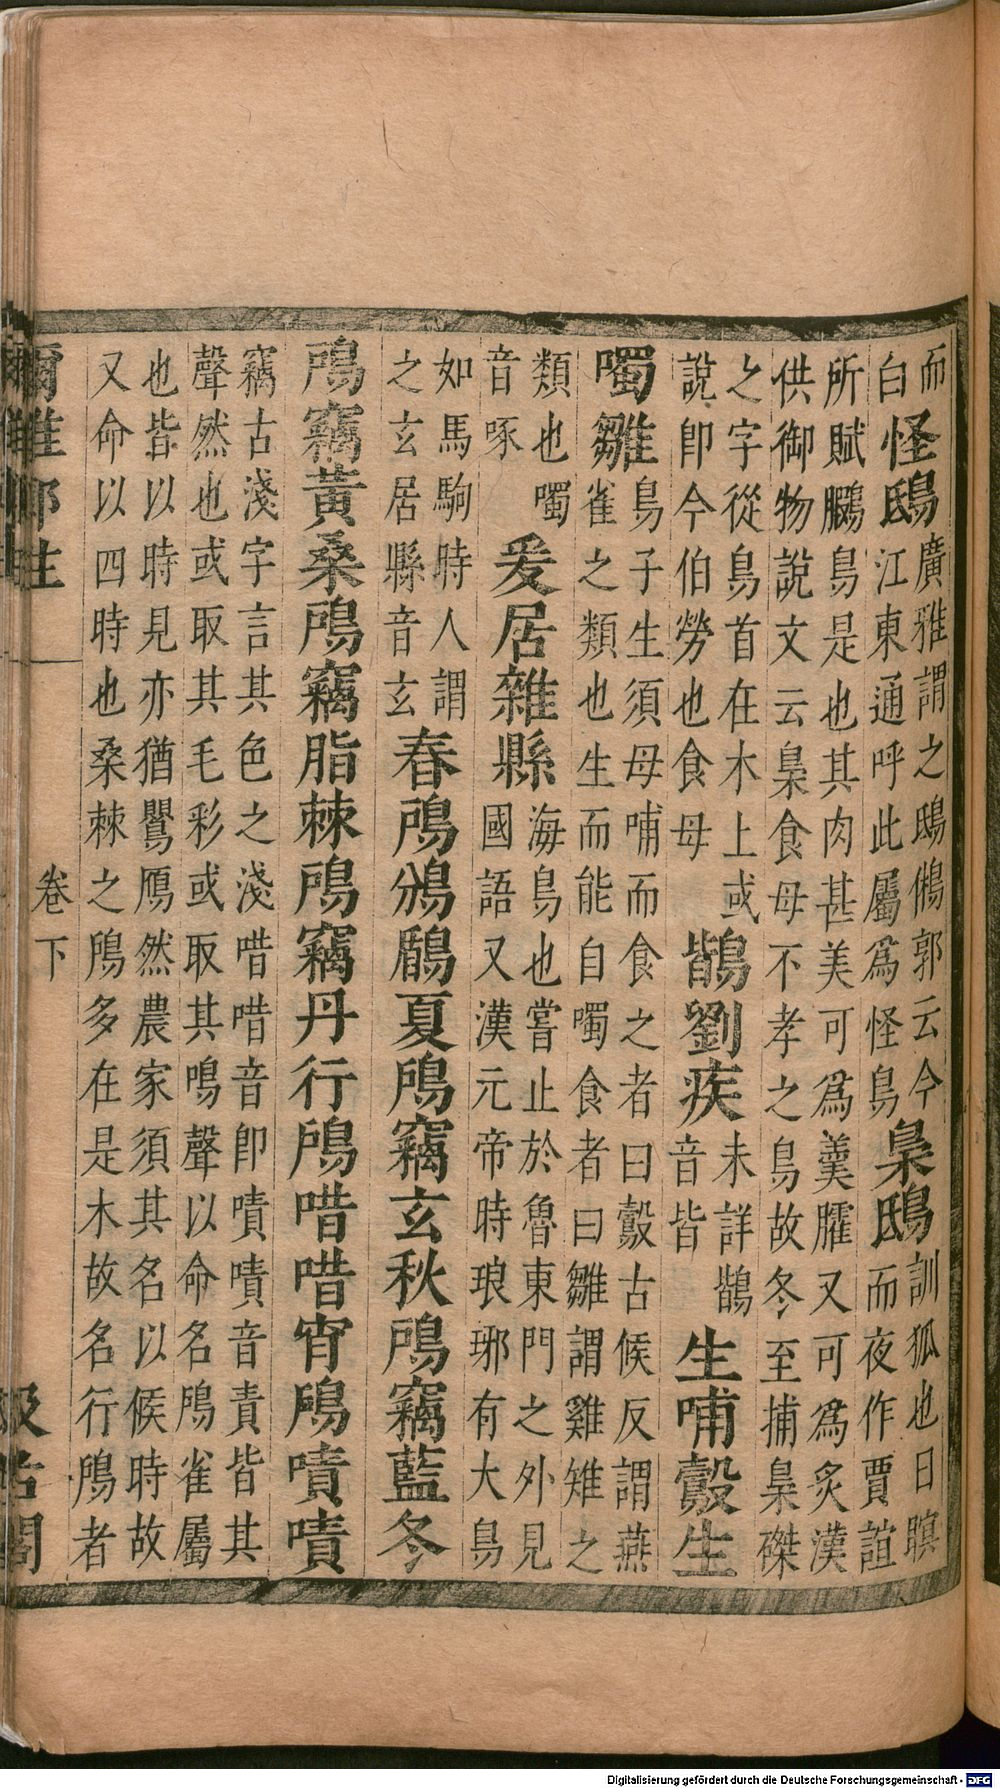 而白怪鴟廣雅謂之鴟鵂郭云今江東通呼此屬爲怪鳥梟鴟訓狐也日瞑而夜作賈誼
所賦鵩鳥是也其肉甚美可爲羹臛又可爲炙漢供御物說文云梟食母不孝之鳥故冬至捕梟磔
之字從鳥首在木上或說卽今伯勞也食母鶛劉疾未詳鶛音皆生哺鷇生
噣雛鳥子生須母哺而食之者曰鷇古候反謂燕雀之類也生而能自噣食者曰雛謂雞雉之
類也噣音啄爰居雜縣海鳥也嘗止於魯東門之外見國語又漢元帝時琅邪有大鳥
如馬駒時人謂之玄居縣音玄春鳸鳻鶞夏鳸竊玄秋鳸竊藍冬
鳸竊黃桑鳸竊脂棘鳸竊丹行鳸唶唶宵鳸嘖嘖
竊古淺字言其色之淺唶唶音卽嘖嘖音責皆其聲然也或取其毛彩或取其鳴聲以命名鳸雀屬
也皆以時見亦猶鸎鴈然農家須其名以候時故又命以四時也桑棘之鳸多在是木故名行鳸者
爾雅鄭注 卷下 汲古閣
Digitalisierung gefördert durch die Deutsche Forschungsgemeinschaft - DFG